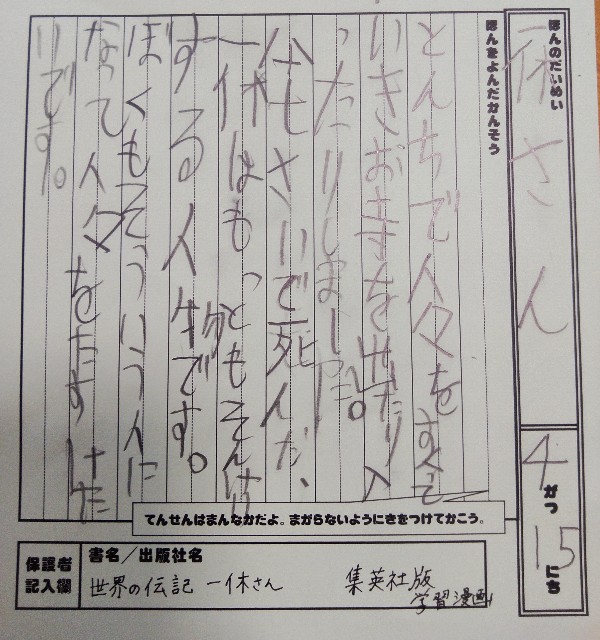 ほんのだいめい
一休さん
4がつ15にち
ほんをよんだかんそう
とんちで人々をすくって
いきお寺を出たり入
ったりしました。
八七さいで死んだ、
一休はもっともそんけい
する人物です。
ぼくもそういう人に
なって人々をたすけた
いです。
てんせんはまんなかだよ。まがらないようにきをつけてかこう。
保護者
記入欄
書名/出版社名
世界の伝記 一休さん 集英社版
学習漫画